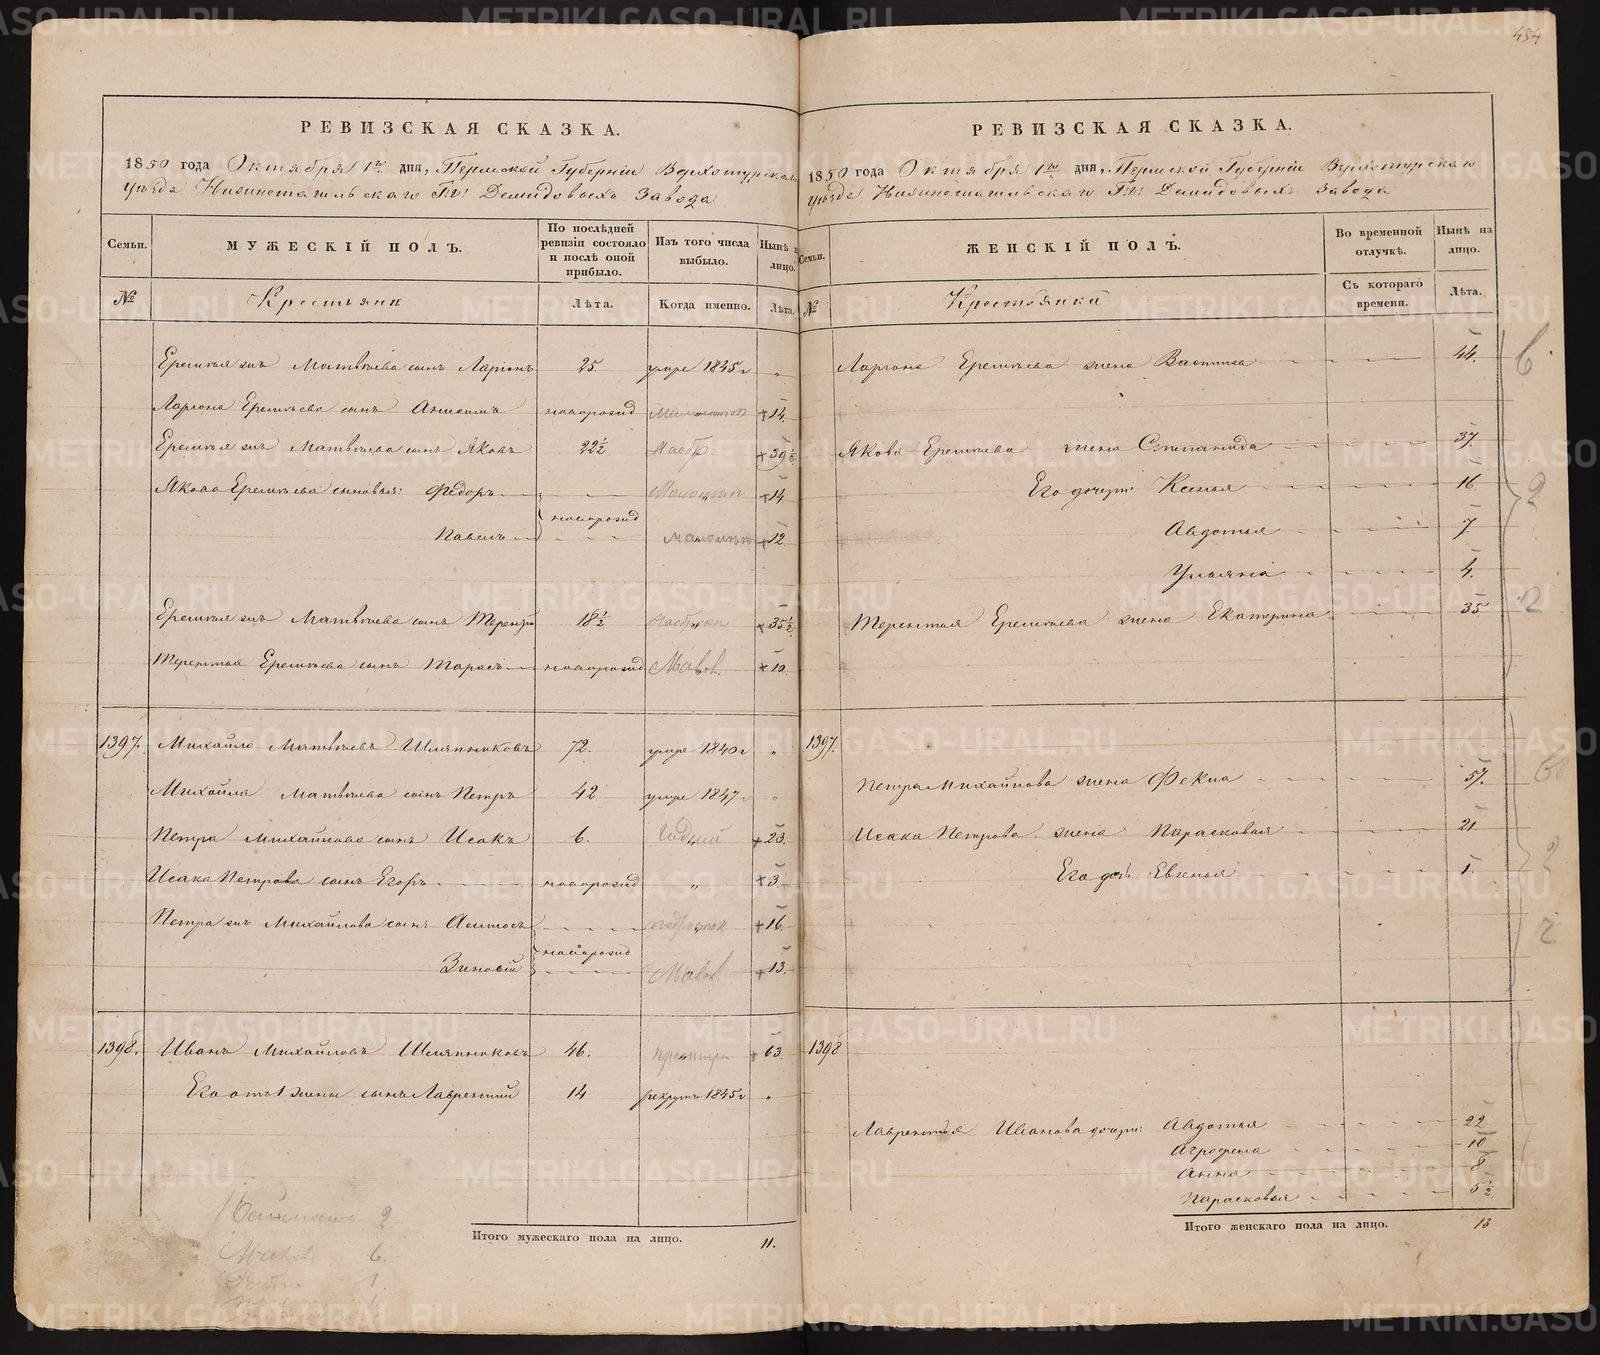 454
РЕВИЗСКАЯ СКАЗКА.
1850 года Октября 1го дня, Пермской Губерніи Верхотурскаго
уѣзда Нижнетагильскаго Гг: Демидовыхъ Завода
Семьи.
МУЖЕСКІЙ ПОЛЪ.
По послѣдней ревизіи состояло и послѣ оной прибыло.
Изъ того числа выбыло.
Нынѣ на лицо.
№
Крестьяне
Лѣта.
Когда именно.
Лѣта.
Еремѣя жъ Матвѣева сынъ Ларіонъ 25 умре 1845 г "
Ларіона Еремѣева сынъ Анисимъ новорожд +14
Еремѣя жъ Матвѣева сынъ Яковъ 22½ +39½
Якова Еремѣева сыновья: Федоръ +14
новорожд
Павелъ +12
Еремѣя жъ Матвѣева сынъ Терентій 18½ +35½
Терентья Еремѣева сынъ Тарасъ новорожд Малол. +10
1397. Михайло Матвѣевъ Шляпниковъ 72. умре 1840 г "
Михайла Матвѣева сынъ Петръ 42 умре 1847 г "
Петра Михайлова сынъ Исакъ 6. Годный +23.
Исака Петрова сынъ Егоръ новорожд " +3.
Петра жъ Михайлова сынъ подростки +16
новорожд
Зиновій Малол. +13.
1398. Иванъ Михайловъ Шляпниковъ 46. 63.
Его отъ 1 жены сынъ Лаврентій 14 рекрутъ 1845 г "
2
6.
1.
Итого мужескаго пола на лицо. 11.
РЕВИЗСКАЯ СКАЗКА.
1850 года Октября 1го дня, Пермской Губерніи Верхотурскаго
уѣзда Нижнетагильскаго Гг: Демидовыхъ Завода
Семьи.
ЖЕНСКІЙ ПОЛЪ.
Во временной отлучкѣ.
Нынѣ на лицо.
№
Крестьянки
Съ котораго времени.
Лѣта.
Ларіона Еремѣева жена Васиlиса 44.
6
Якова Еремѣева жена Степанида 37.
Его дочери: Ксенья 16
2
Авдотья 7.
Ульяна 4.
Терентья Еремѣева жена Екатерина 35
2
1397.
Петра Михайлова жена Фекла 57.
Исака Петрова жена Парасковья 21
Его дочь Евгенья 1.
2
2
1398
Лаврентья Иванова дочери: Авдотья 22
Агрофена 10
Анна 8
Парасковья 5½
Итого женскаго пола на лицо. 13
METRIKI.GASO-URAL.RU